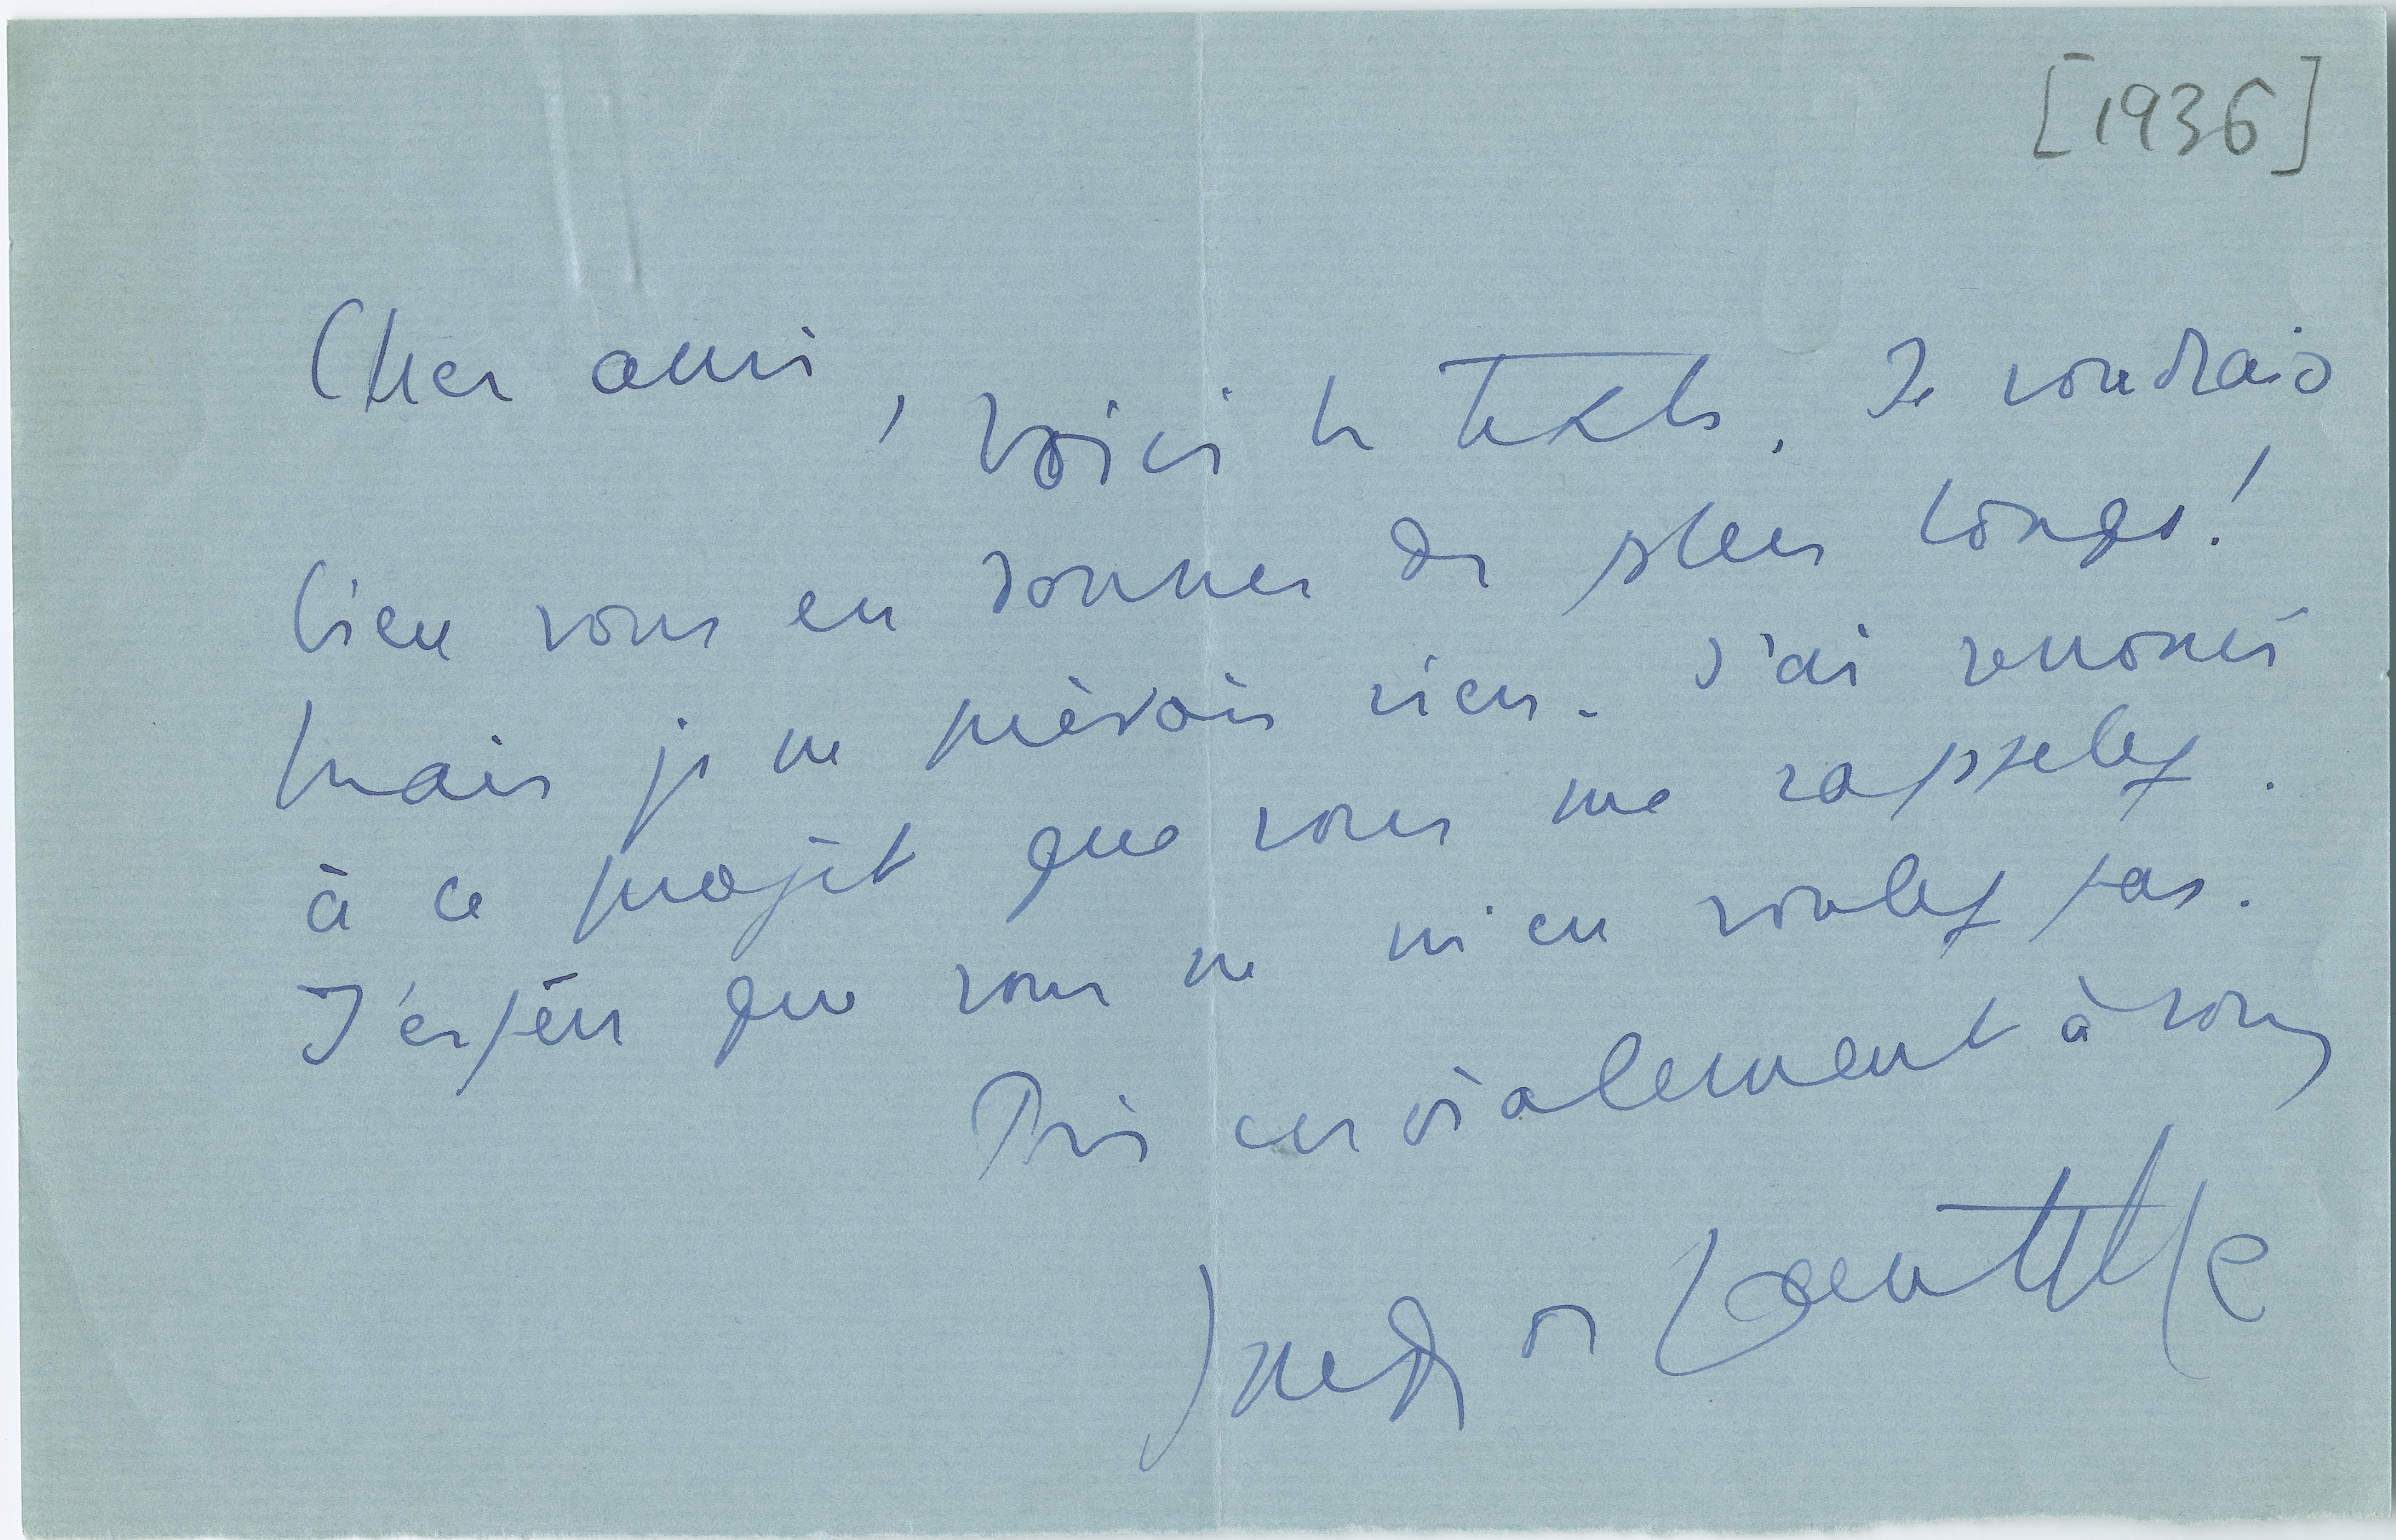 [1936]
Cher ami, Voici le texte. Je voudrais
bien vous en donner de plus longs!
Mais je ne prévois rien. J'ai renoncé
à ce projet que vous me rappelez.
J'espère que vous ne m'en voulez pas.
Très cordialement à vous
de